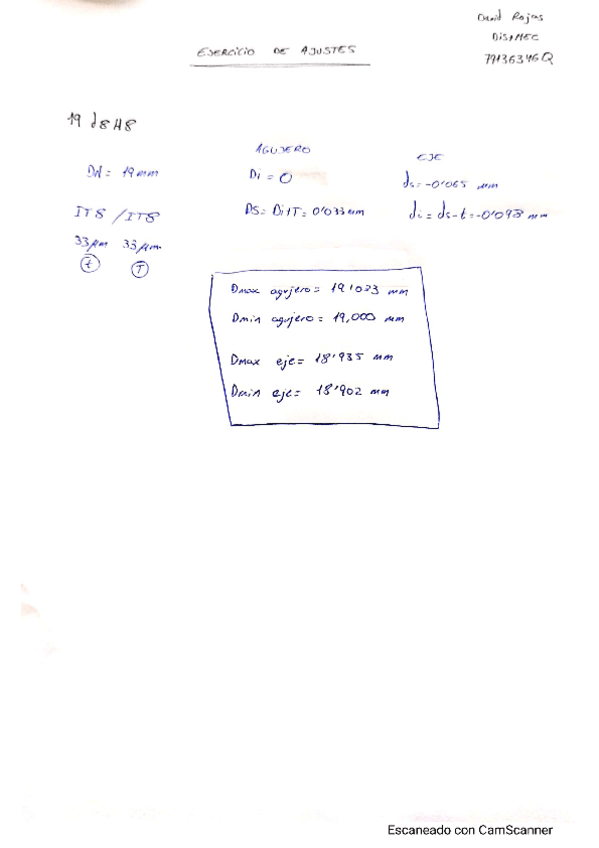 David Rojas
DISMEC
79136346Q
EJERCICIO DE AJUSTES
19 d8H8
AGUJERO
EJE
DN = 19 mm
Di = 0
ds = -0'065 mm
IT8 / IT8
DS = Di+T = 0'033 mm
di = ds-t = -0'098 mm
33μm 33μm
t T
Dmax agujero = 19'033 mm
Dmin agujero = 19,000 mm
Dmax eje = 18'935 mm
Dmin eje = 18'902 mm
Escaneado con CamScanner